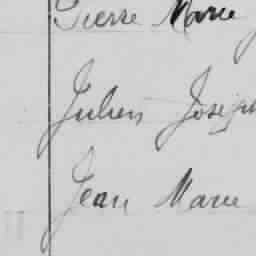 Pierre Marie
Julien Joseph
Jean Marie